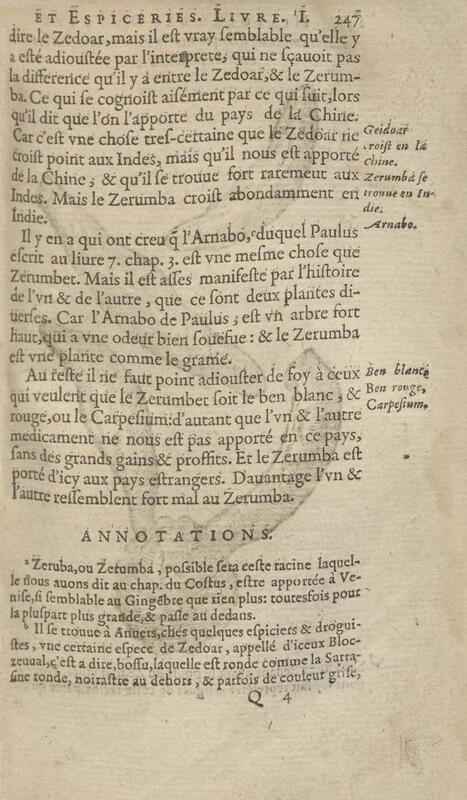 ET ESPICERIES. LIVRE. I. 247
dire le Zedoar, mais il est vray semblable qu'elle y
a esté adioustée par l'interprete, qui ne sçauoit pas
la difference qu'il y a entre le Zedoar, & le Zerum-
ba. Ce qui se cognoist aisément par ce qui suit, lors
qu'il dit que l'on l'apporte du pays de la Chine.
Car c'est vne chose tres-certaine que le Zedoar ne
croist point aux Indes, mais qu'il nous est apporté
de la Chine, & qu'il se trouue fort raremeut aux
Indes. Mais le Zerumba croist abondamment en
Indie.
Geidoar
croist en la
chine.
Zerumba se
trouue en In-
die.
Il y en a qui ont creu q̃ l'Arnabo, duquel Paulus
escrit au liure 7. chap. 3. est vne mesme chose que
Zerumbet. Mais il est asses manifeste par l'histoire
de l'vn & de l'autre, que ce sont deux plantes di-
uerses. Car l'Arnabo de Paulus, est vn arbre fort
haut, qui a vne odeur bien souefue: & le Zerumba
est vne plante comme le gramé.
Arnabo.
Au reste il ne faut point adiouster de foy à ceux
qui veulent que le Zerumbet soit le ben blanc, &
rouge, ou le Carpesium: d'autant que l'vn & l'autre
medicament ne nous est pas apporté en ce pays,
sans des grands gains & proffits. Et le Zerumba est
porté d'icy aux pays estrangers. Dauantage l'vn &
l'autre ressemblent fort mal au Zerumba.
Ben blanc,
Ben rouge,
Carpesium.
ANNOTATIONS.
a Zeruba, ou Zerumba, possible sera ceste racine laquel-
le nous auons dit au chap. du Costus, estre apportée à Ve-
nise, si semblable au Gingẽbre que rien plus: toutesfois pour
la pluspart plus grande, & pasle au dedans.
b Il se trouue à Anuers, chés quelques espiciers & drogui-
stes, vne certaine espece de Zedoar, appellé d'iceux Bloc-
zeuual, c'est a dire, bossu, laquelle est ronde comme la Sarra-
sine ronde, noirastre au dehors, & parfois de couleur grise,
Q 4